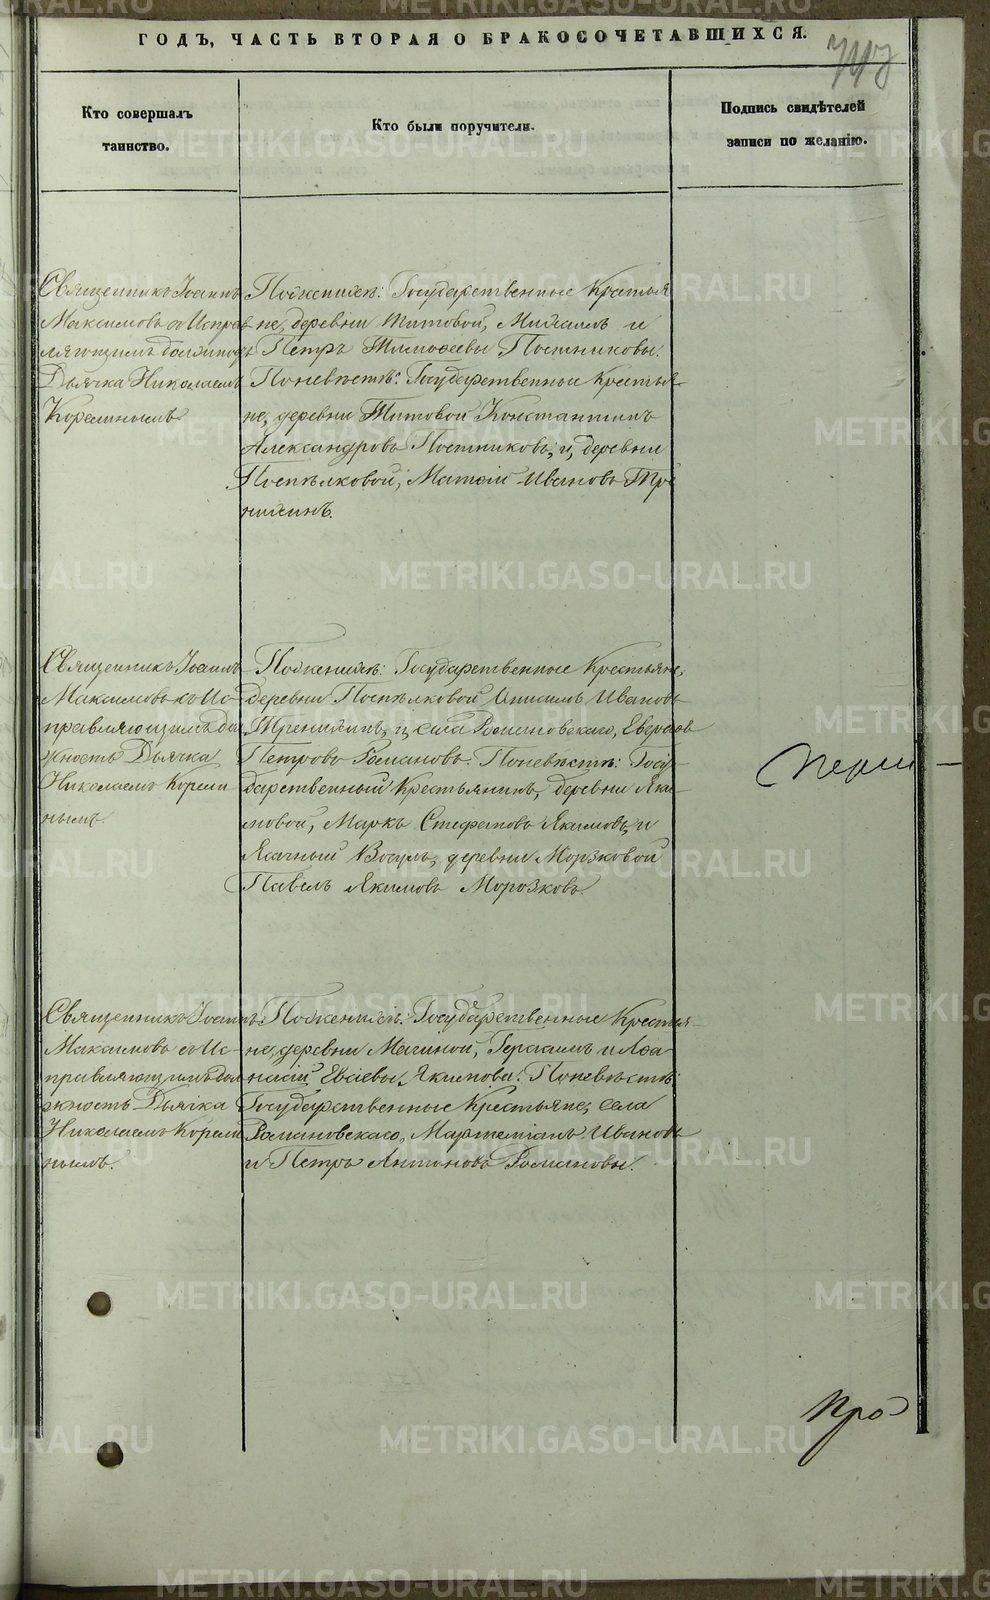 ГОДЪ, ЧАСТЬ ВТОРАЯ О БРАКОСОЧЕТАВШИХСЯ.
Кто совершалъ
таинство.
Кто были поручители.
Подпись свидѣтелей
записи по желанію.
Священникъ Іоаннъ
Максимовъ съ Исправ
ляющимъ должность
Дьячка Николаемъ
Корелинымъ
По женихѣ: Государственные Крестья
не, деревни Титовой, Михаилъ и
Петръ Тимофеевы Постниковы.
По невѣстѣ: Государственные Крестья-
не, деревни Титовой Константинъ
Александровъ Постниковъ, и, деревни
Поспѣлковой, Матфій Ивановъ Тре
нихинъ.
Священникъ Іоаннъ
Максимовъ съ Ис-
правляющимъ дол
жность Дьячка
Николаемъ Корели
нымъ.
По женихѣ: Государственные Крестьяне,
деревни Поспѣлковой Ивановъ
Тренихинъ, и села Романовскаго,
Петровъ Романовъ. По невѣстѣ: Госу-
дарственный Крестьянинъ, деревни Яки-
мовой, Маркъ Стефановъ Якимовъ, и
Ясачный Вогулъ, деревни Морзковой
Павелъ Якимовъ Морозковъ.
Священникъ Іоаннъ
Максимовъ съ Ис-
правляющимъ дол
жность Дьячка
Николаемъ Корели
нымъ.
По женихѣ: Государственные Крестья-
не, деревни Мачиной, Герасимъ и Афа-
насій Якимовы. По невѣстѣ:
Государственные Крестьяне, села
Романовскаго, Мартеміанъ Ивановъ
и Петръ Антоновъ Романовы.
Перм-
Про
METRIKI.GASO-URAL.RU